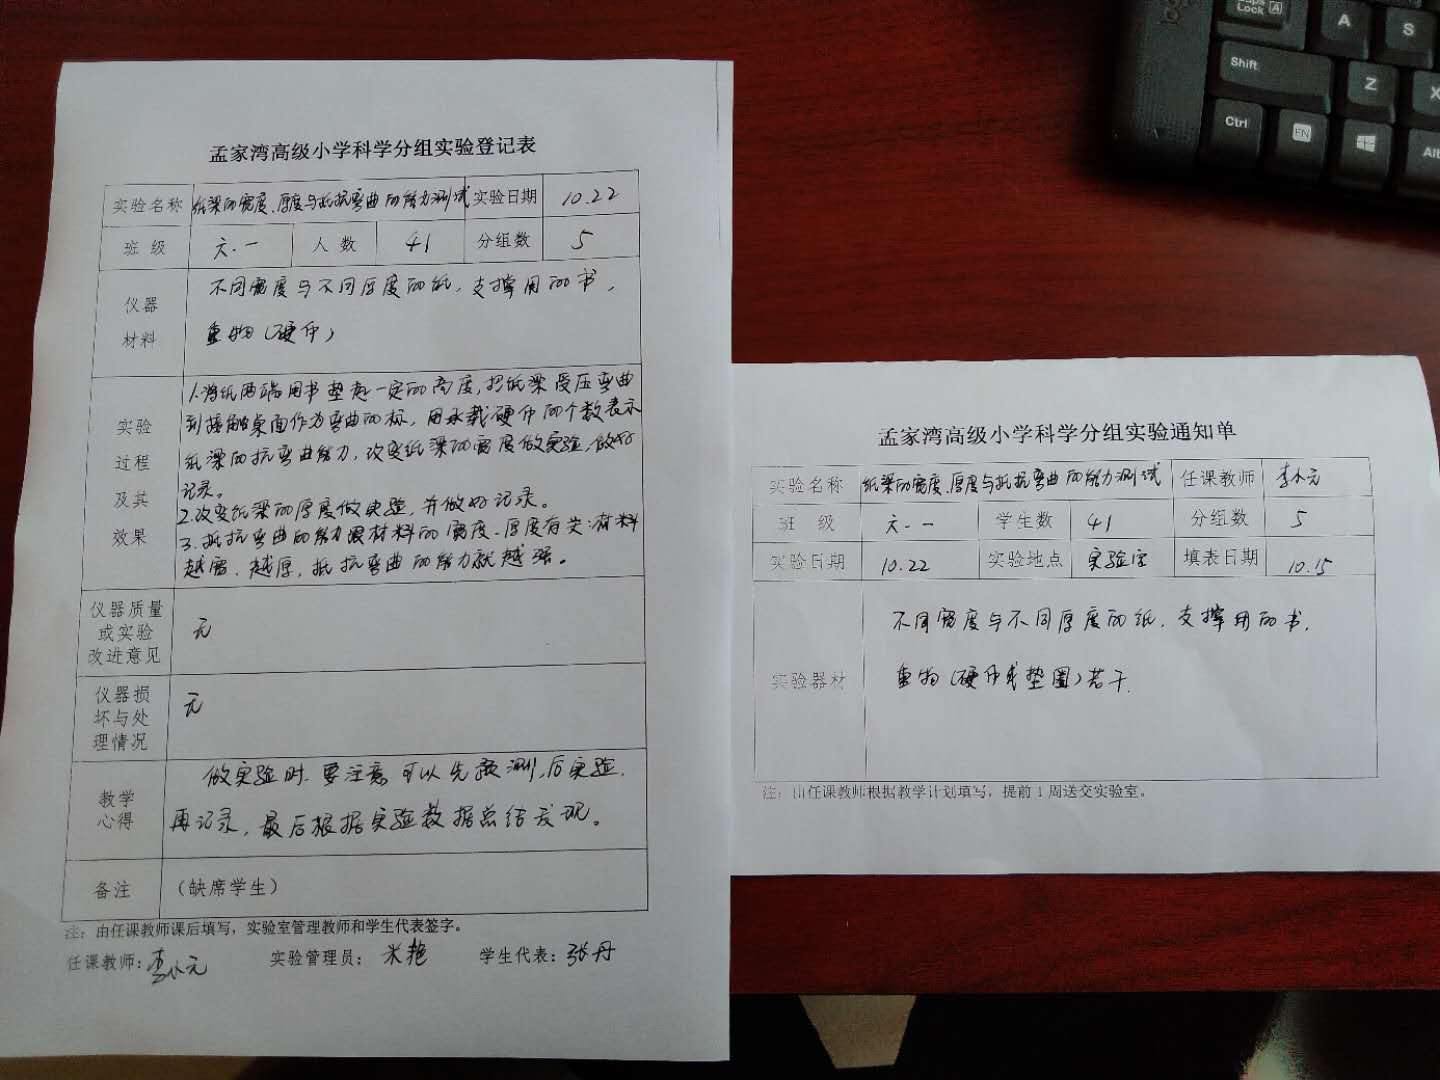 孟家湾高级小学科学分组实验登记表
实验名称 纸梁的宽度、厚度与抵抗弯曲的能力测试 实验日期 10.22
班 级 六.一 人 数 41 分组数 5
仪器材料
不同宽度与不同厚度的纸，支撑用的书，
重物(硬币)
实验过程及其效果
1.将纸两端用书垫起一定的高度，把纸梁受压弯曲
到接触桌面作为弯曲的标，用承载硬币的个数表示
纸梁的抗弯曲能力，改变纸梁的宽度做实验，做好
记录。
2.改变纸梁的厚度做实验，并做好记录。
3.抵抗弯曲的能力跟材料的宽度、厚度有关：材料
越宽、越厚，抵抗弯曲的能力就越强。
仪器质量或实验改进意见 无
仪器损坏与处理情况 无
教学心得
做实验时.要注意可以先预测，后实验.
再记录，最后根据实验数据总结发现。
备注 （缺席学生）
注：由任课教师课后填写，实验室管理教师和学生代表签字。
任课教师：李小元 实验管理员：米艳 学生代表：张丹
孟家湾高级小学科学分组实验通知单
实验名称 纸梁的宽度、厚度与抵抗弯曲的能力测试 任课教师 李小元
班 级 六.一 学生数 41 分组数 5
实验日期 10.22 实验地点 实验室 填表日期 10.15
实验器材
不同宽度与不同厚度的纸.支撑用的书.
重物(硬币或垫圈)若干.
注：由任课教师根据教学计划填写，提前1周送交实验室。
Caps Lock A
A
S
Shift
Z
X
Ctrl
EN
Alt